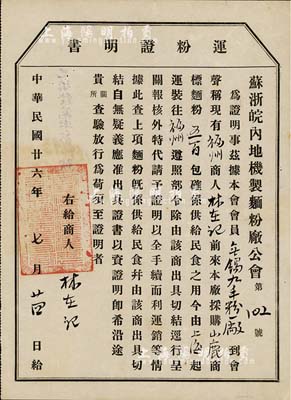 運粉證明書
蘇浙皖內地機製麵粉廠公會 第102號
為證明事茲據本會會員無錫九丰粉廠到會
聲稱現有福州商人林在記前來本廠採購山鹿商
標麵粉五百包確係供給民食之用今由上海起
運裝往福州遵照部令除由該商出具切結逕行呈
關報核外特代請予證明以全手續而利運銷等情
據此查上項麵粉旣係供給民食并由該商出具切
結自無疑義應准出具證書以資證明卽希沿途
貴關所查驗放行為荷須至證明者
右給商人 林在記
中華民國廿六年 七月 廿四日給